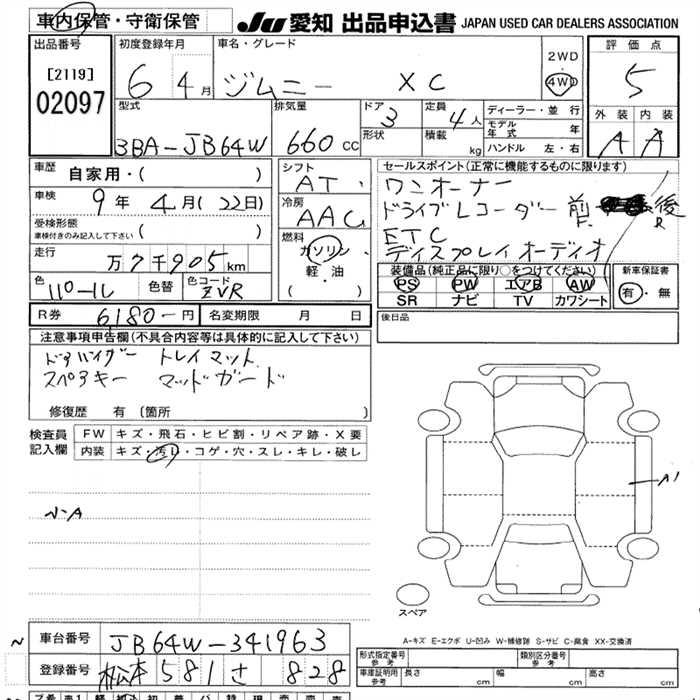 車内保管・守衛保管 JU 愛知 出品申込書 JAPAN USED CAR DEALERS ASSOCIATION
出品番号 [2119] 02097
初度登録年月 6 4月
車名・グレード ジムニー XC
2WD
4WD
評価点 5
外装 内装
A A
型式 3BA-JB64W
排気量 660 CC
ドア 3
形状
定員 4人
積載 kg
ディーラー・並行
モデル年式 年
ハンドル 左・右
車歴 自家用・( )
車検 9年 4月 (22日)
受検形態
車検付きのみ記入して下さい ( )
走行 万7千905km
色 パープル 色替 色コード ZVR
シフト AT
冷房 AAC
燃料 ガソリン
軽・油
( )
セールスポイント(正常に機能するものに限ります)
ワンオーナー
ドライブレコーダー 前F. 後R
ETC
ディスプレイオーディオ
装備品(純正品に限り○をつけてください)
PS PW エアB AW
SR ナビ TV カワシート
新車保証書
有・無
R券 6,180-円 名変期限 月 日
後日品
注意事項申告欄(不具合内容等は具体的に記入して下さい)
ドアバイザー トレイマット
スペアキー マッドガード
修復歴 有(箇所 )
検査員記入欄
FW キズ・飛石・ヒビ割・リペア跡・X要
内装 キズ・汚レ・コゲ・穴・スレ・キレ・破レ
A1
スペア
A-キズ E-エクボ U-凹み W-補修跡 S-サビ C-腐食 XX-交換済
車台番号 JB64W-341963
登録番号 松本 581 さ 828
形式指定番号 参考
類別区分番号 参考
車庫証明用 参考 長さ cm 幅 cm 高さ cm